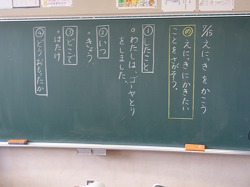 7/15 えにっきをかこう
め えにっきにかきたいことをさがそう。
① したこと
○わたしは、ゴーヤとりをしました。
② いつ
・きょう
③ どこで
・はたけ
④ どうおもったか